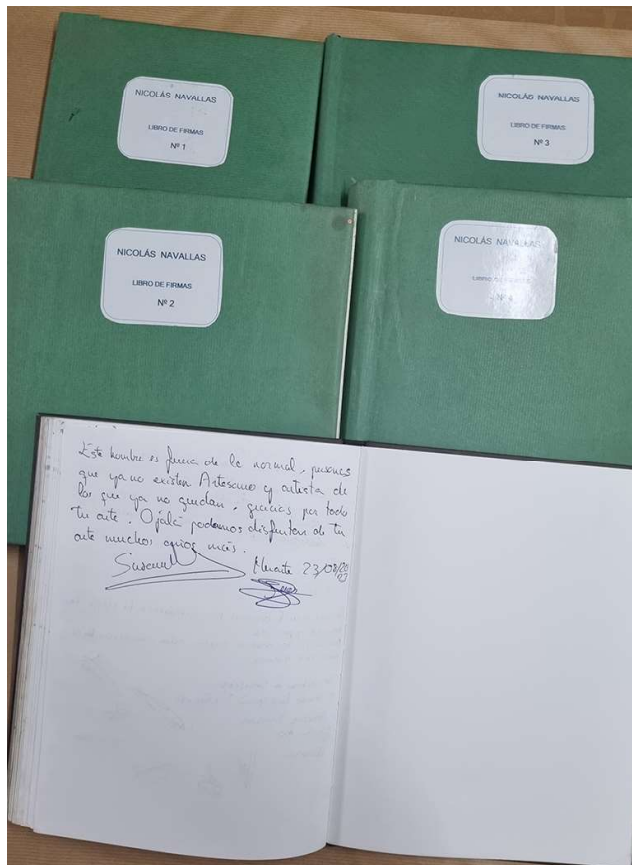 NICOLÁS NAVALLAS
LIBRO DE FIRMAS
Nº 1
NICOLÁS NAVALLAS
LIBRO DE FIRMAS
Nº 3
NICOLÁS NAVALLAS
LIBRO DE FIRMAS
Nº 2
NICOLÁS NAVALLAS
LIBRO DE FIRMAS
Nº 4
Este hombre es fuera de lo normal, personas
que ya no existen Artesano y artista de
los que ya no quedan, gracias por todo
tu arte. Ojalá podamos disfrutar de tu
arte muchos años más.
23/08/2023